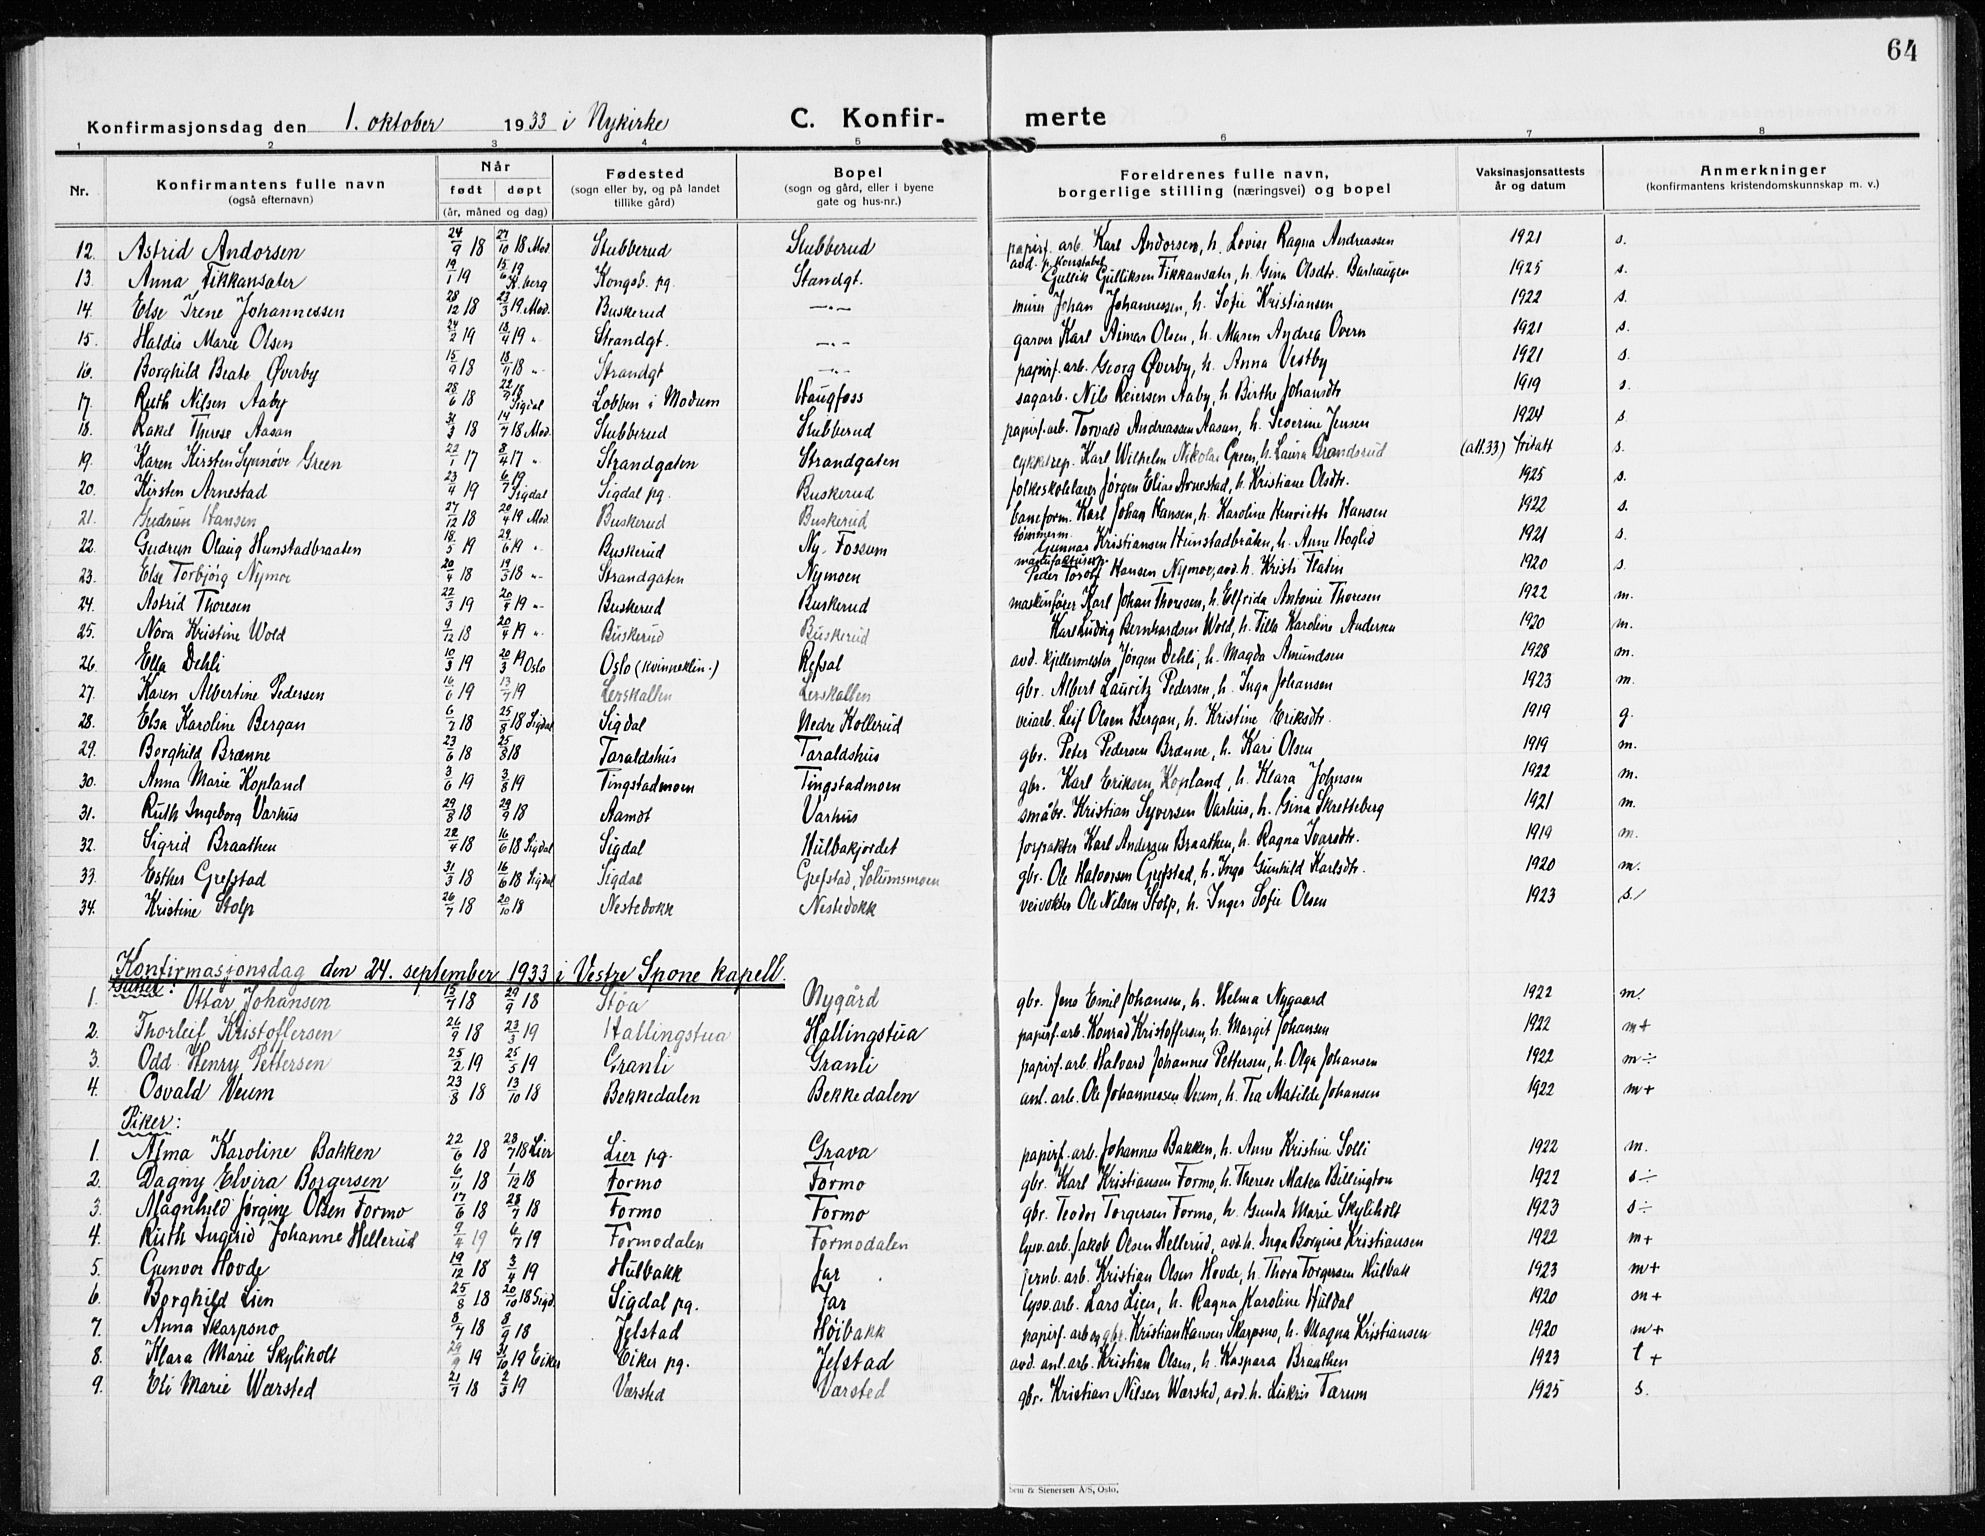 64
Konfirmasjonsdag den 1. oktober 1933 i Nykirke C. Konfir- merte
1 2 3 4 5 6 7 8
Nr. Konfirmantens fulle navn (også efternavn) Når født døpt (år, måned og dag) Fødested (sogn eller by, og på landet tillike gård) Bopel (sogn og gård, eller i byene gate og hus-nr.) Foreldrenes fulle navn, borgerlige stilling (næringsvei) og bopel Vaksinasjonsattests år og datum Anmerkninger (konfirmantens kristendomskunnskap m. v.)
12. Astrid Andorsen 24/9 18 27/10 18 Mod. Stubberud Stubberud papirf. arb. Karl Andorsen, h. Lovise Ragna Andreassen 1921 s.
13. Anna Fikkansater 19/1 19 15/6 19 K.berg Kongsb. pg. Standgt. avd. p. konstabel Gullik Gulliksen Fikkansater, h. Gina Olsdtr. Barhaugen 1925 s.
14. Else Irene Johannessen 28/12 18 23/3 19 Mod. Buskerud —"— murer Johan Johannessen, h. Sofie Kristiansen 1922 s.
15. Haldis Marie Olsen 24/2 19 18/4 19 " Strandgt. —"— garver Karl Aimar Olsen, h. Maren Andrea Overn 1921 s.
16. Borghild Beate Øverby 15/9 18 18/11 18 " Strandgt —"— papirf. arb. Georg Øverby, h. Anna Vestby 1921 s.
17. Ruth Nilsen Aaby 28/6 18 22/9 18 Sigdal Lobben i Modum Haugfoss sagarb. Nils Reiersen Aaby, h. Birthe Johansdtr 1919 s.
18. Rakel Therese Aasan 31/3 18 14/7 18 Mod. Stubberud Stubberud papirf. arb. Torvald Andreassen Aasan, h. Severine Jensen 1924 s.
19. Karen Kirsten Synnøve Green 22/1 17 8/4 17 " Strandgaten Strandgaten cykkrep. Karl Wilhelm Nikolai Green, h. Laura Brandsrud (att. 33) fritatt s.
20. Kirsten Arnestad 23/4 19 6/7 19 Sigdal Sigdal pg. Buskerud folkeskolelærer Jørgen Elias Arnestad, h. Kristiane Olsdtr. 1925 s.
21. Gudrun Hansen 27/12 18 20/4 19 Mod. Buskerud Buskerud baneform. Karl Johan Hansen, h. Karoline Henriette Hansen 1922 s.
22. Gudrun Olaug Hunstadbraaten 18/5 19 29/6 19 " Buskerud Ny-Fossum tømmerm. Gunnar Kristiansen Hunstadbråten, h. Anne Hoglid 1921 s.
23. Else Torbjørg Nymoe 20/4 18 19/3 18 " Strandgaten Nymoen Peder Torolf Hansen Nymoe, avd. h. Kristi Flaten 1920 s.
24. Astrid Thoresen 22/3 19 20/4 19 " Buskerud Buskerud maskinfører Karl Johan Thoresen, h. Elfrida Antonie Thoresen 1922 m.
25. Nora Kristine Wold 9/12 18 20/4 19 " Buskerud Buskerud Karl Ludvig Bernhardsen Wold, h. Tilla Karoline Andersen 1920 m.
26. Ella Dehli 10/3 19 20/3 19 Oslo Oslo (kvinneklin.) Refsal avd. kjellermester Jørgen Dehli, h. Magda Amundsen 1928 m.
27. Karen Albertine Pedersen 16/6 19 13/7 19 Lerskallen Lerskallen gbr. Albert Lauritz Pedersen, h. Inga Johansen 1923 m.
28. Elsa Karoline Bergan 6/7 18 25/8 18 Sigdal Sigdal Nedre Kollerud veiarb. Leif Olsen Bergan, h. Kristine Eriksdtr. 1919 g.
29. Borghild Brænne 23/6 18 25/8 18 Taraldshus Taraldshus gbr. Peter Pedersen Brænne, h. Kari Olsen 1919 m.
30. Anna Marie Kopland 3/6 19 3/8 19 Tingstadmoen Tingstadmoen gbr. Karl Eriksen Kopland, h. Klara Johnsen 1922 m.
31. Ruth Ingeborg Varhus 29/8 18 29/9 18 Aamot Varhus småbr. Kristian Syversen Varhus, h. Gina Skretteberg 1921 m.
32. Sigrid Braathen 22/4 18 16/6 18 Sigdal Sigdal Hulbakjordet forpakter Karl Andersen Braathen, h. Ragna Ivarsdtr. 1919 m.
33. Esther Grefstad 31/3 18 16/6 18 Sigdal Sigdal Grefstad, Solumsmoen gbr. Ole Halvorsen Grefstad, h. Inga Gunhild Karlsdtr. 1920 m.
34. Kristine Stolp 26/7 18 20/10 18 Nestedokk Nestedokk veivokter Ole Nilsen Stolp, h. Inger Sofie Olsen 1923 s.
Konfirmasjonsdag den 24. september 1933 i Vestre Spone kapell.
Gutter:
1. Ottar Johansen 15/7 18 29/9 18 Støa Nygård gbr. Jens Emil Johansen, h. Helma Nygaard 1922 m.
2. Thorleif Kristoffersen 26/9 18 23/3 19 Hallingstua Hallingstua papirf. arb. Konrad Kristoffersen, h. Margit Johansen 1922 m+
3. Odd Henry Pettersen 25/2 19 25/5 19 Granli Granli papirf. arb. Halvard Johannes Pettersen, h. Olga Johansen 1922 m÷
4. Osvald Veum 23/8 18 13/10 18 Bekkedalen Bekkedalen anl. arb. Ole Johannessen Veum, h. Tea Matilde Johansen 1922 m+
Piker:
1. Alma Karoline Bakken 22/6 18 28/7 18 Lier Lier pg. Grava papirf. arb. Johannes Bakken, h. Anne Kristine Solli 1922 m.
2. Dagny Elvira Borgersen 6/11 18 1/12 18 Formo Formo gbr. Karl Kristiansen Formo, h. Therese Matea Billington 1922 s÷
3. Magnhild Jørgine Olsen Formo 17/6 18 28/7 18 Formo Formo gbr. Teodor Torgersen Formo, h. Gunda Marie Skyliholt 1923 s÷
4. Ruth Ingerid Johanne Hellerud 9/4 19 6/7 19 Formodalen Formodalen lysv. arb. Jakob Olsen Hellerud, avd. h. Inga Borgine Kristiansen 1922 m+
5. Gunvor Hovde 19/12 18 3/4 19 Hulbakk Jar jernb. arb. Kristian Olsen Hovde, h. Thora Torgersen Hulbak 1923 m+
6. Borghild Lien 25/8 18 20/10 18 Sigd. Sigdal pg. Jar lysv. arb. Lars Lien, h. Ragna Karoline Huldal 1920 m+
7. Anna Skarpsno 8/7 18 8/9 18 Jelstad Høibakk papirf. arb og gbr. Kristian Hansen Skarpsno, h. Magna Kristiansen 1920 m+
8. Klara Marie Skyliholt 29/9 19 31/10 19 Eiker Eiker pg. Jelstad avd. anl. arb. Kristian Olsen, h. Kaspara Braathen 1923 t+
9. Eli Marie Wærsted 21/7 18 2/3 19 Værsted Værsted gbr. Kristian Nilsen Wærsted, avd. h. Lukris Tarum 1925 s.
bem & Stenersen A/S, Oslo.